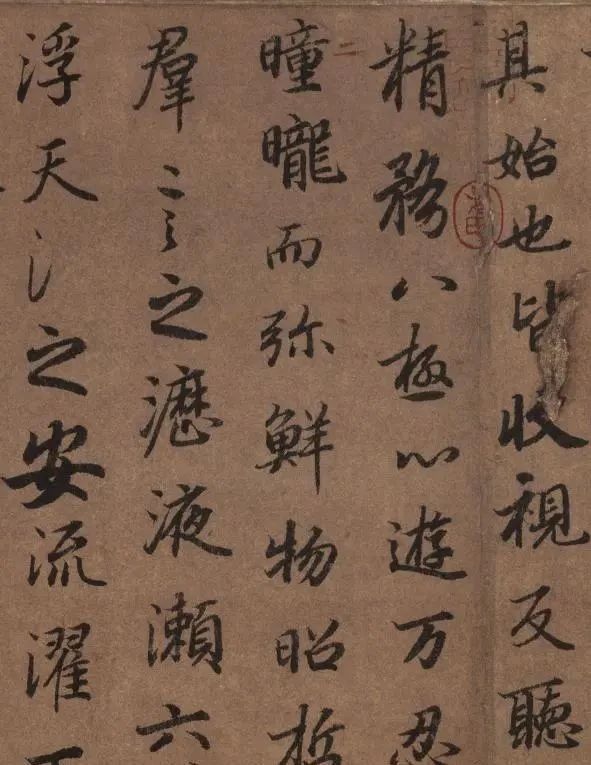 其始也皆收視反聽
精務八極心遊万忍
曈曨而弥鮮物昭
羣言之瀝液瀬六
浮天氵之安流濯